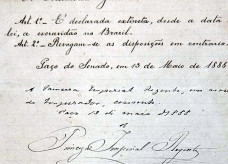 Art. 1º- É declarada extincta, desde a data
lei, a escravidão no Brazil.
Art. 2º- Revogam-se as disposições em contrario.
Paço do Senado, em 13 de Maio de 1888
A Princeza Imperial Regente, em nome
Imperador, consente.
Paço 13 de maio de 1888
Princeza Imperial Regente